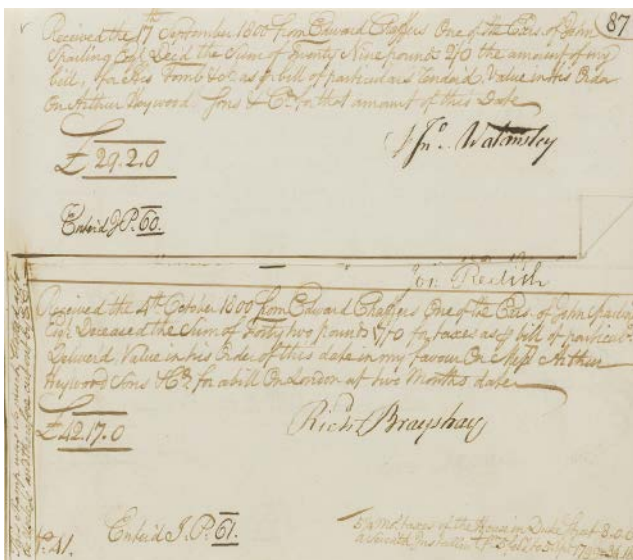 87
Received the 17th September 1800 from Edward Chaffers One of the Exrs. of John
Sparling Esqr. Decd. the Sum of Twenty Nine pounds 2/0 the amount of my
bill, for His Tomb &c. as p bill of particulars tendered Value in His Order
On Arthur Heywood Sons & Co. for that amount of this Date
Jno. Walmsley
£ 29.2.0
Enterid J.P. 60.
Redish
Received the 4th October 1800 from Edward Chaffers One of the Exrs. of John Sparling
Esqr. Deceased the Sum of Forty two pounds 17/0 for taxes as p bill of particulars
Deliver'd Value in his Order of this date in my favour On Messrs Arthur
Heywood Sons & Co. for a bill On London at two Months date
Richd. Brayshay
£ 42.17.0
Enterid J. P. 61.
taxes of the House in Duke Street 3.0.0